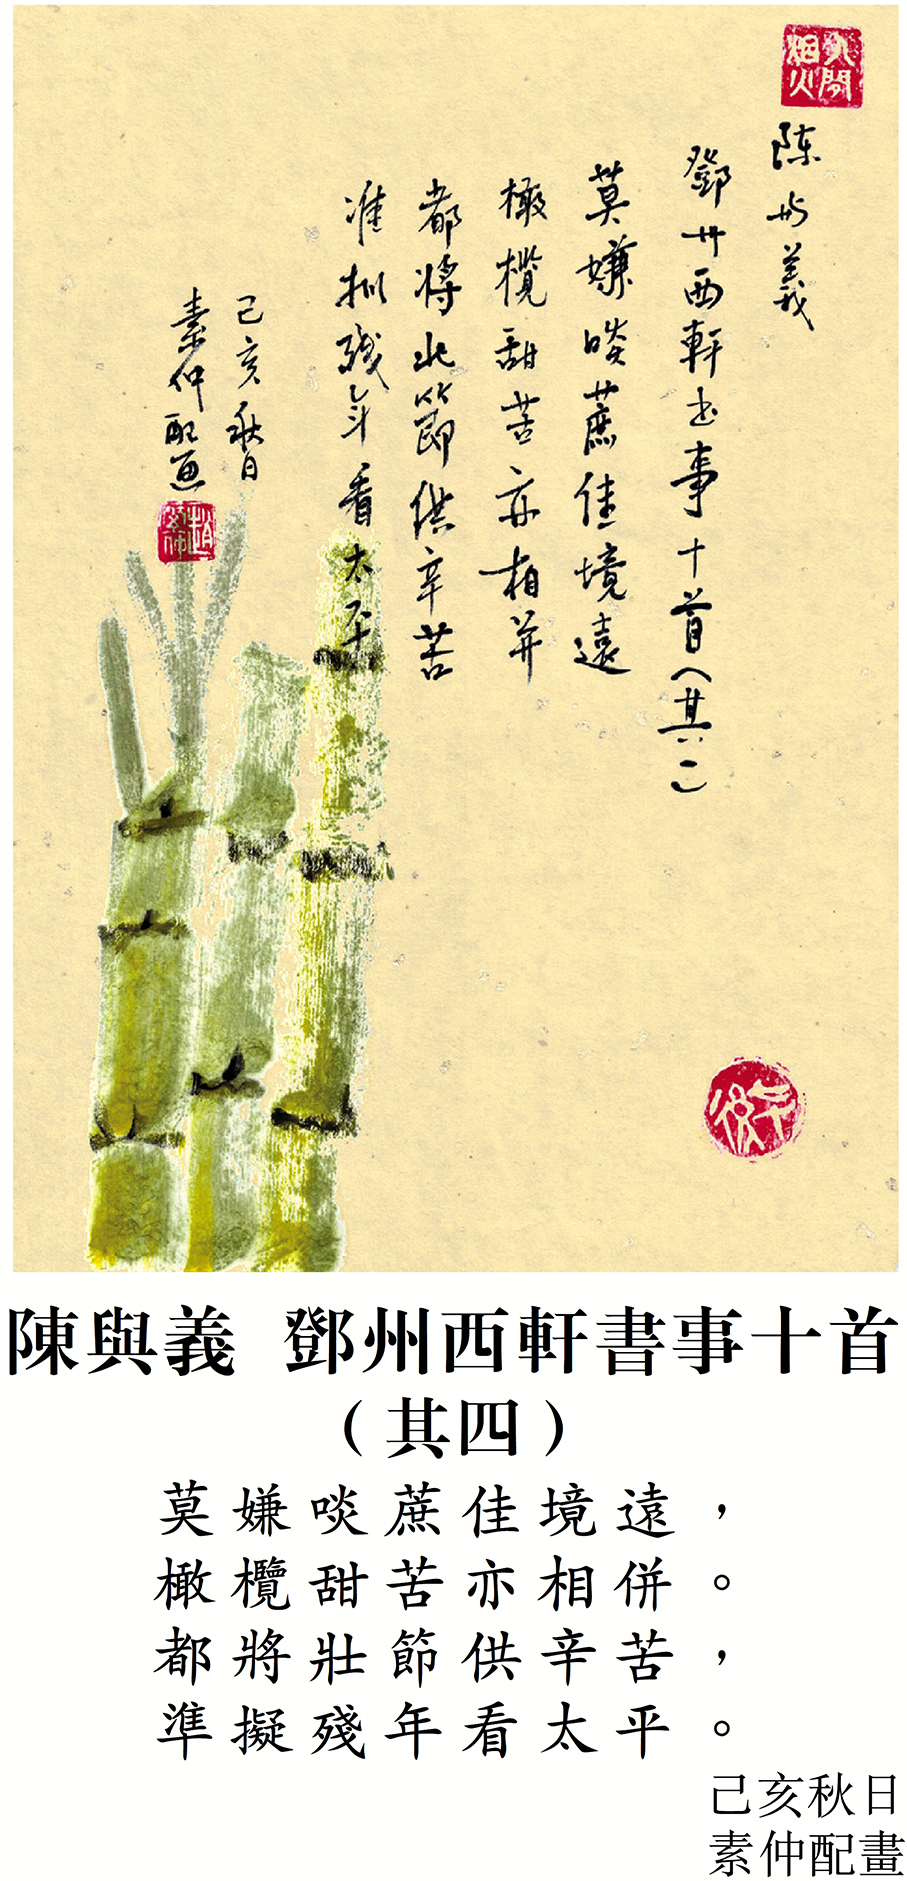 人間烟火
陈与義
鄧州西軒书事十首(其
莫嫌啖蔗佳境遠
橄欖甜苦亦相并
都將此節供辛苦
准拟残年看太平
己亥秋日
素仲配画
趙素仲
陳與義 鄧州西軒書事十首
（其四）
莫嫌啖蔗佳境遠，
橄欖甜苦亦相併。
都將壯節供辛苦，
準擬殘年看太平。
己亥秋日
素仲配畫